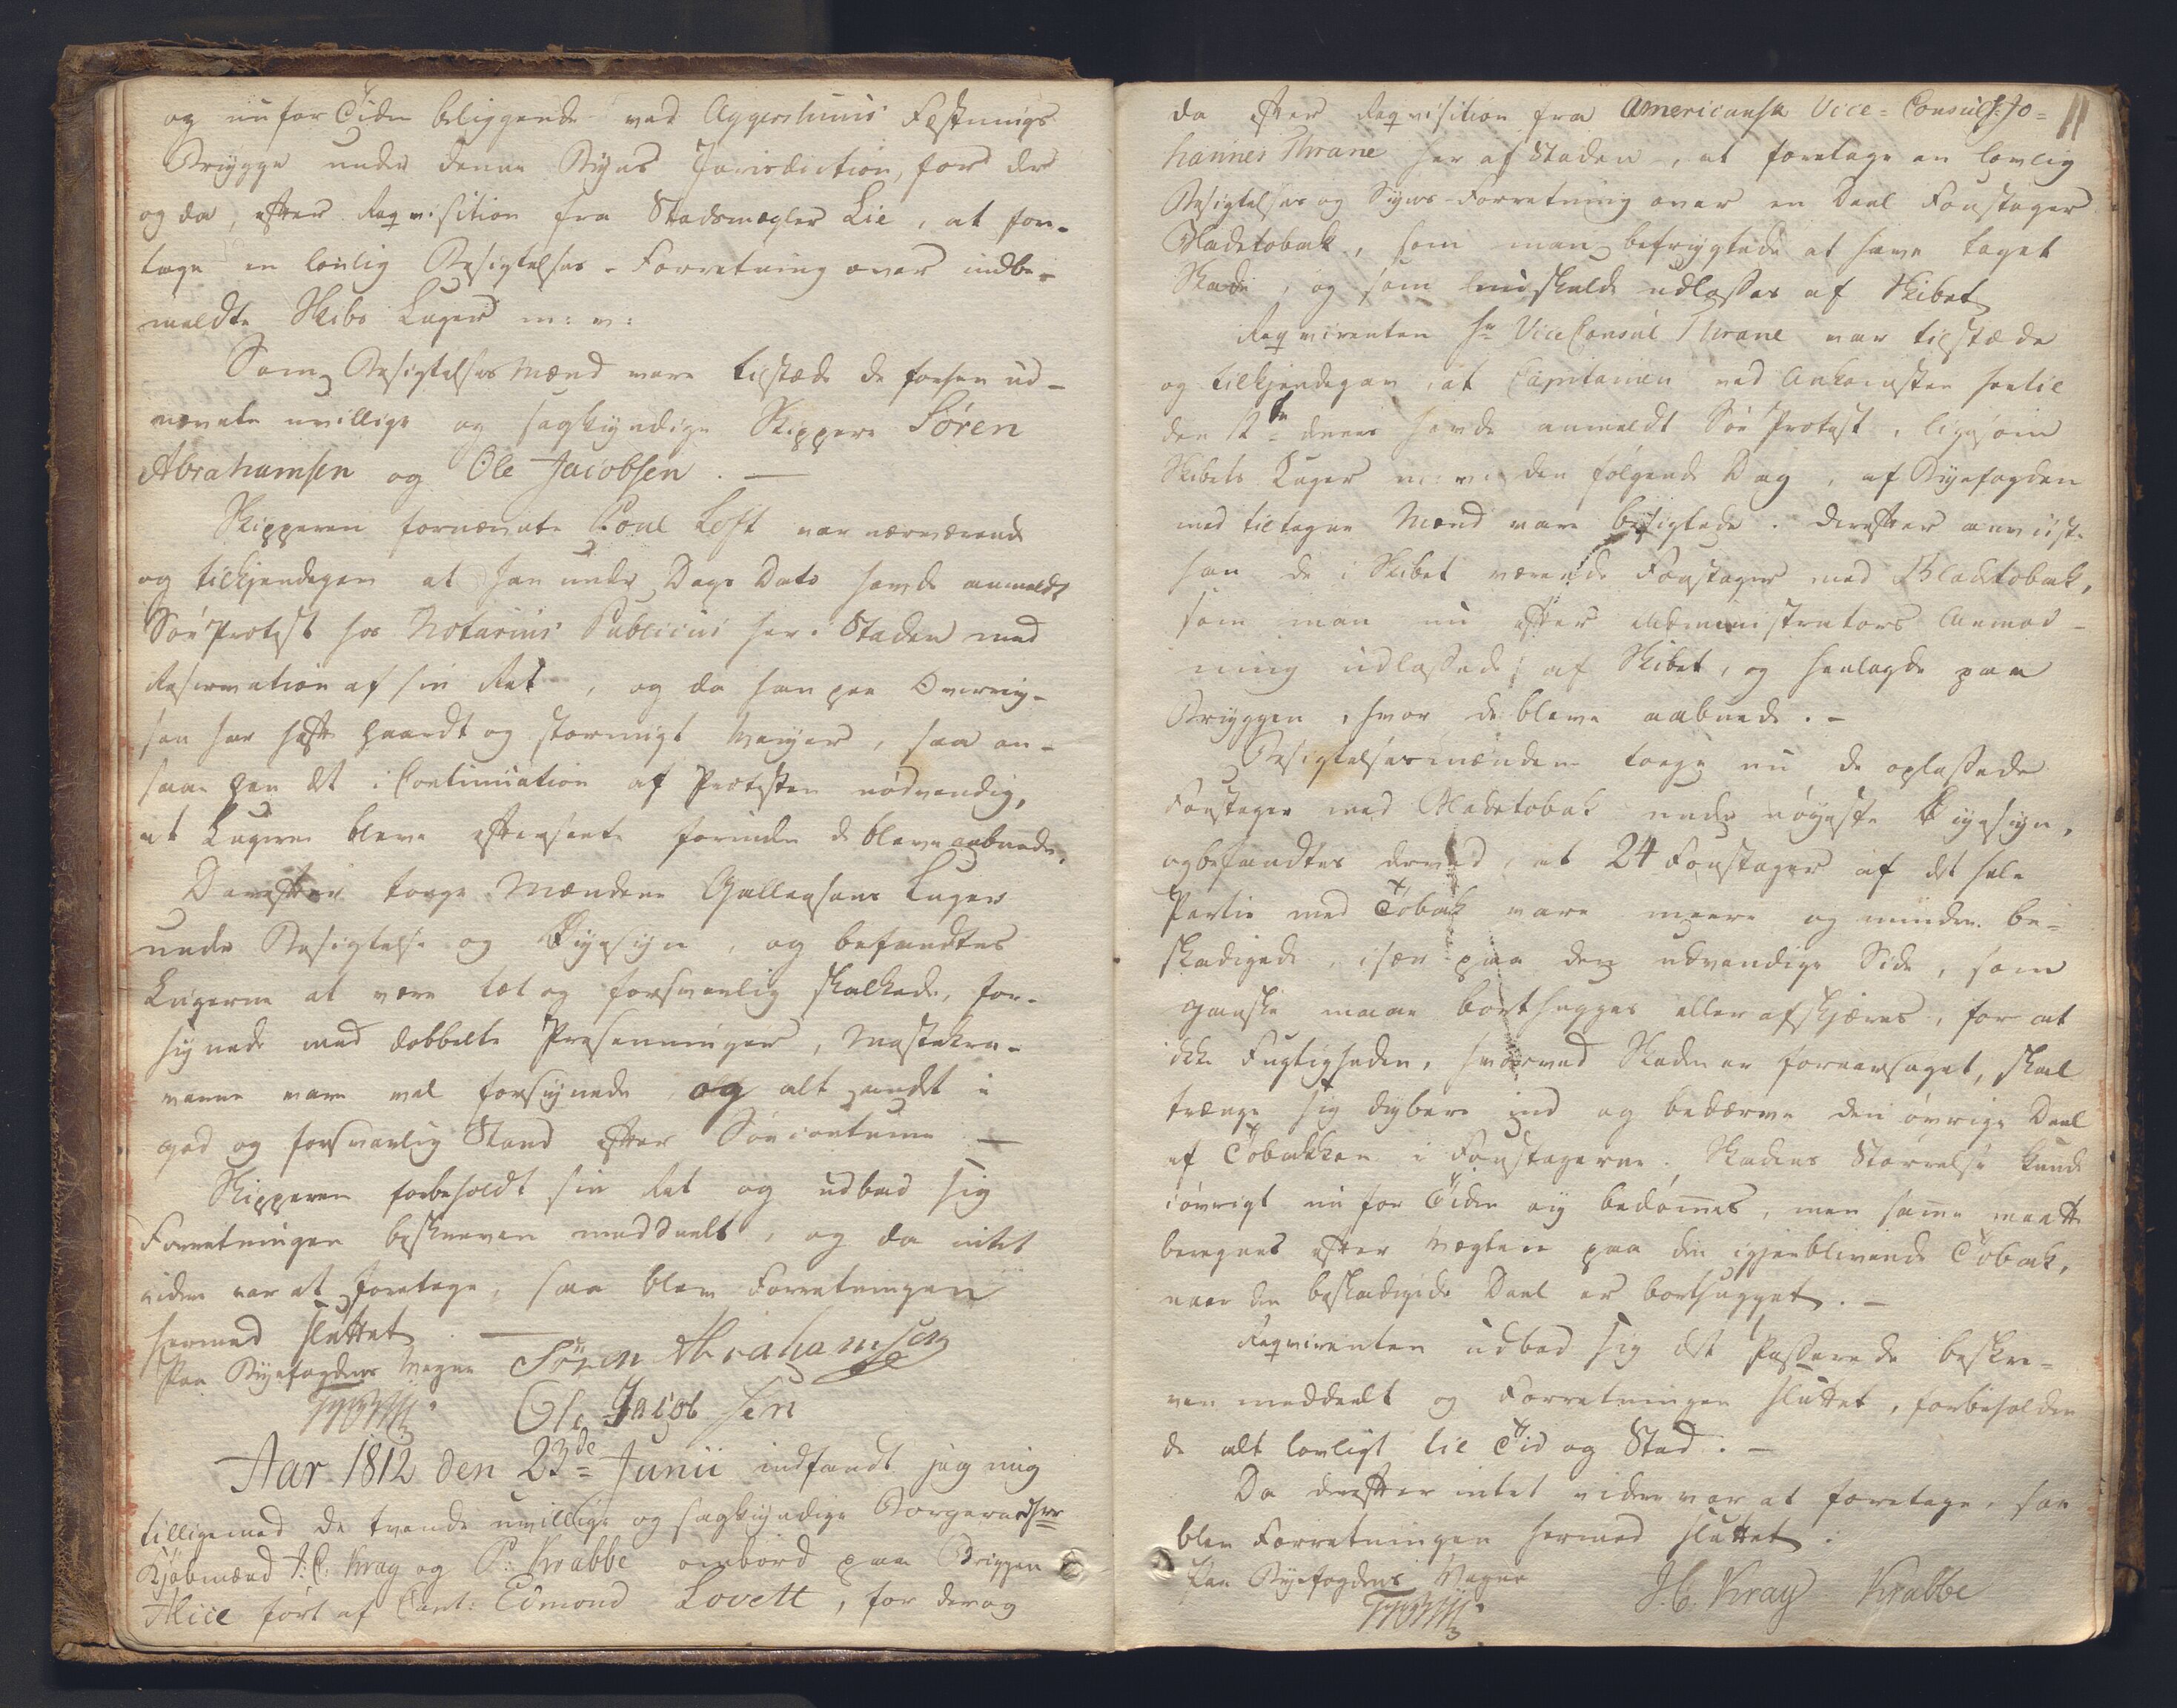 og nu for Tiden beliggende ved Aggershuus Festnings
Brygge under denne Byes Jurisdiction, for der
og da, efter Reqvisition fra Stadsmægler Lie, at fore-
tage en lovlig Besigtelses-Forretning over indbe-
meldte Skibs Luger m: v:
Som Besigtelses Mænd vare tilstæde de forhen ud-
nævnte uvillige og sagkyndige Skippere Sören
Abrahamsen og Ole Jacobsen. —
Skipperen fornævnte Poul Loft var nærværende
og tilkjendegav at han under Dags Dato havde anmeldt
Söe Protest hos Notarius Publicus her i Staden med
Reservation af sin Ret, og da han paa Overrej-
sen har havt haardt og stormigt Vejer, saa an-
saae han det i Continuation af Protesten nödvendig,
at Lugerne bleve efterseete forinden de bleve aabnede.
Derefter toge Mændene Galleasens Luger
under Besigtelse og Øyesyn, og befandtes
Lugerne at være tæt og forsvarlig skalkede, for-
synede med dobbelte Presenninger, Mastekra-
verne vare vel forsynede, og alt andet i
god og forsvarlig Stand efter Söecoutume —
Skipperen forbeholdt sin Ret og udbad sig
Forretningen beskreven meddeelt, og da intet
videre var at foretage, saa blev Forretningen
hermed sluttet. —
Paa Byefogdens Vegne Sören Abrahamsen
Ole Jacobsen
Aar 1812 den 23de Junii indfandt jeg mig
tilligemed de tvende uvillige og sagkyndige Borgere Hrr
Kjöbmænd J: C: Kray og P: Krabbe ombord paa Briggen
Alice fört af Capt: Edmond Lovett, for der og
11
da efter Reqvisition fra Americansk Vice-Consul Hr Jo-
hannes Thrane her af Staden, at foretage en lovlig
Besigtelses og Syns-Forretning over en Deel Foustager
Bladetobak, som man befrygtede at have taget
Skade, og som nu skulde udlosses af Skibet
Reqvirenten Hr Vice Consul Thrane var tilstæde
og tilkjendegav, at Capitainen ved Ankomsten hertil
den 12te dennes havde anmeldt Söe Protest, ligesom
Skibets Luger m: v: den fölgende Dag, af Byefogden
med tiltagne Mænd vare besigtede. Derefter anviiste
han de i Skibet værende Foustager med Bladetobak,
som man nu efter Administrators Anmod-
ning udlossede af Skibet, og henlagde paa
Bryggen, hvor de bleve aabnede. —
Besigtelsesmændene toge nu de oplossede
Foustager med Bladetobak under nöyeste Øyesyn,
og befandtes derved, at 24 Foustager af det hele
Partie med Tobak vare meere og mindre be-
skadigede, især paa den udvendige Side, som
ganske maae borthugges eller afskjæres, for at
ikke Fugtigheden, hvorved Skaden er foraarsaget, skal
trænge sig dybere ind og bedærve den övrige Deel
af Tobakken i Foustagerne. Skadens Störrelse kunde
i övrigt nu for Tiden ey bedömmes, men samme maatte
beregnes efter Vægten paa den igjenblivende Tobak,
naar den beskadigede Deel er borthugget. —
Reqvirenten udbad sig det Passerede beskre-
ven meddeelt og Forretningen sluttet, forbeholden
de alt lovligt til Tid og Sted. —
Da derefter intet videre var at foretage, saa
blev Forretningen hermed sluttet.
Paa Byefogdens Vegne J. C. Kray Krabbe